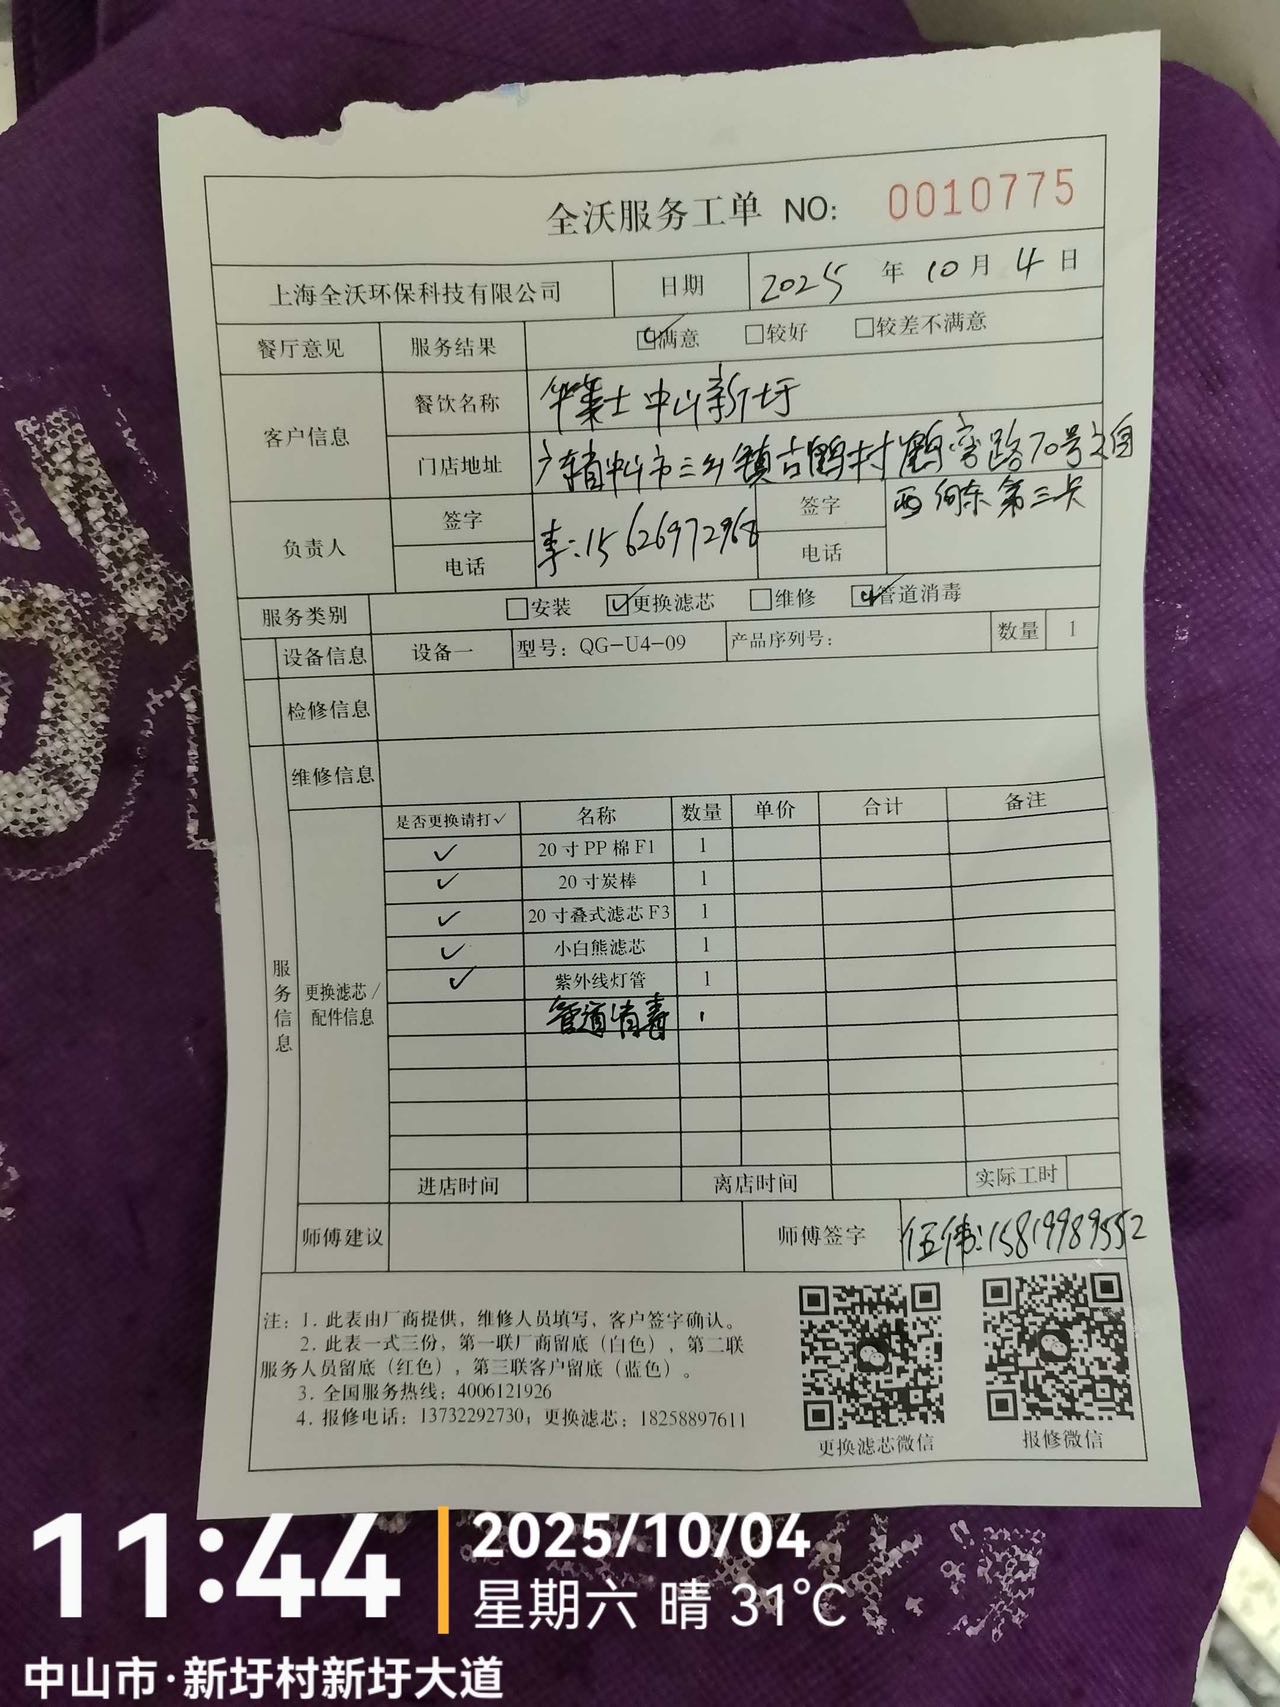 全沃服务工单 NO: 0010775
上海全沃环保科技有限公司 日期 2025 年 10 月 4 日
餐厅意见 服务结果 ☑满意 □较好 □较差不满意
客户信息 餐饮名称 华莱士中山新圩
门店地址 广东省中山市三乡镇古鹤村鹤湾路70号之自
西向东第三卡
负责人 签字 李:15626972968 签字
电话 电话
服务类别 □安装 ☑更换滤芯 □维修 ☑管道消毒
设备信息 设备一 型号:QG-U4-09 产品序列号: 数量 1
检修信息
维修信息
服务信息 更换滤芯/配件信息
是否更换请打✓ 名称 数量 单价 合计 备注
✓ 20寸PP棉F1 1
✓ 20寸炭棒 1
✓ 20寸叠式滤芯F3 1
✓ 小白熊滤芯 1
✓ 紫外线灯管 1
管道消毒 1
进店时间 离店时间 实际工时
师傅建议 师傅签字 伍伟:15819989552
注:1. 此表由厂商提供,维修人员填写,客户签字确认。
2. 此表一式三份,第一联厂商留底(白色),第二联
服务人员留底(红色),第三联客户留底(蓝色)。
3. 全国服务热线:4006121926
4. 报修电话:13732292730;更换滤芯:18258897611
更换滤芯微信 报修微信
11:44
2025/10/04
星期六 晴 31℃
中山市·新圩村新圩大道